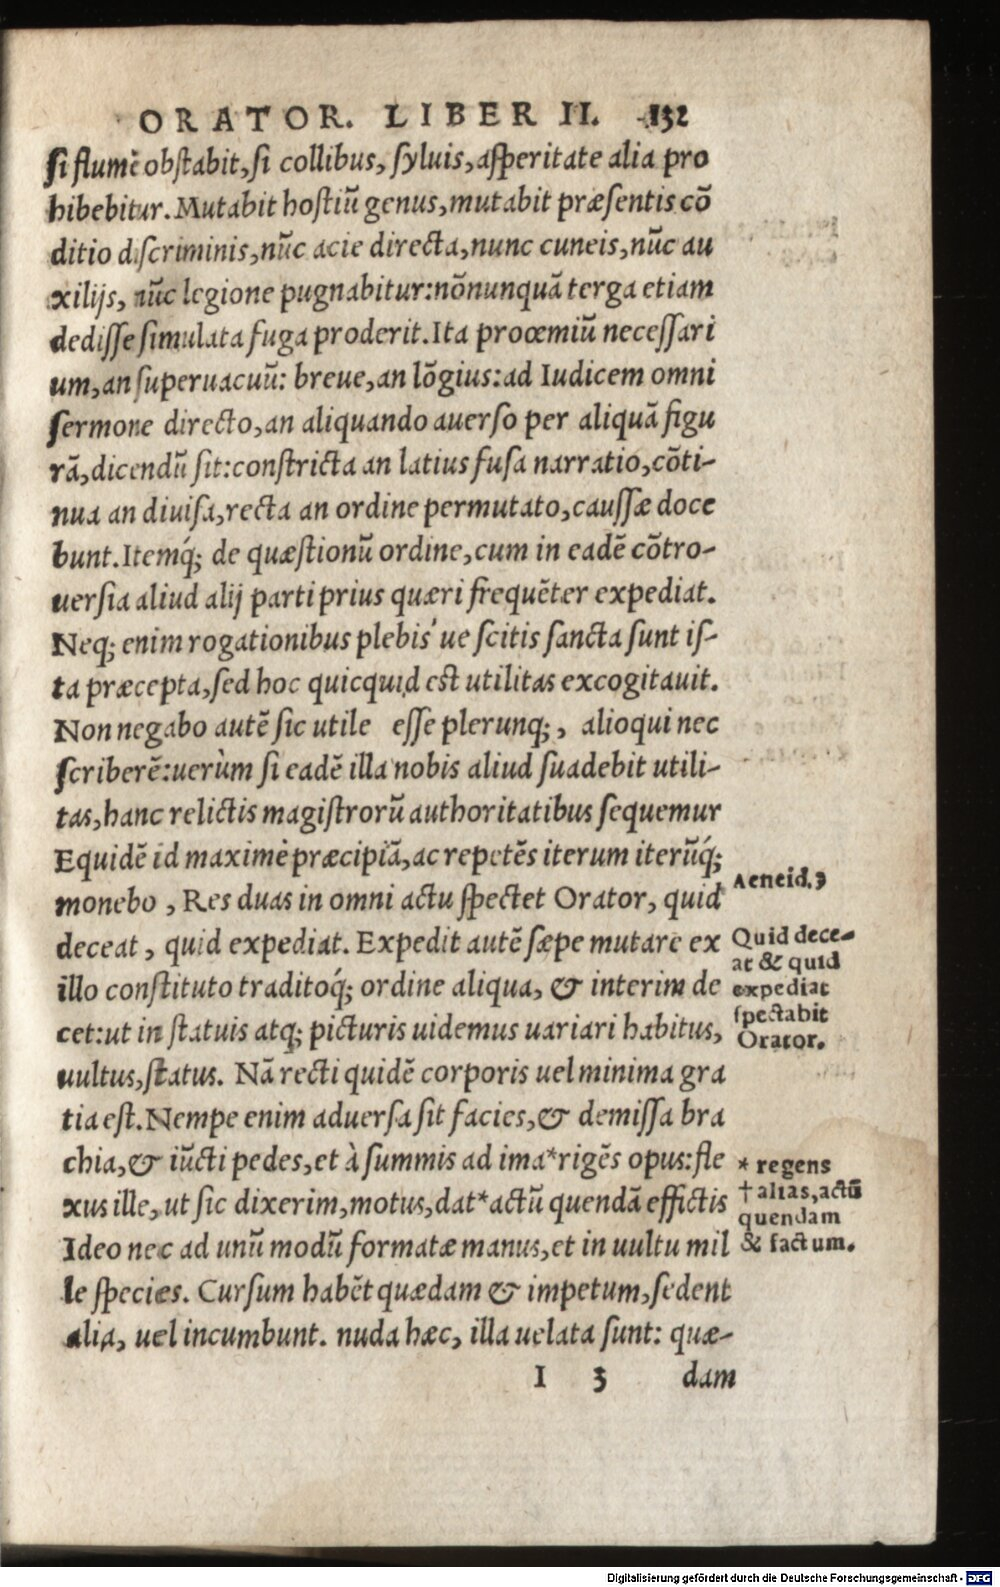 ORATOR. LIBER II. 132
si flumē obstabit, si collibus, syluis, asperitate alia pro
hibebitur. Mutabit hostiū genus, mutabit præsentis cō
ditio discriminis, nūc acie directa, nunc cuneis, nūc au
xilijs, nūc legione pugnabitur: nōnunquā terga etiam
dedisse simulata fuga proderit. Ita proœmiū necessari
um, an superuacuū: breue, an lōgius: ad Iudicem omni
sermone directo, an aliquando auerso per aliquā figu
rā, dicendū sit: constricta an latius fusa narratio, cōti-
nua an diuisa, recta an ordine permutato, caussæ doce
bunt. Itemq́; de quæstionū ordine, cum in eadē cōtro-
uersia aliud alij parti prius quæri frequēter expediat.
Neq; enim rogationibus plebis'ue scitis sancta sunt is-
ta præcepta, sed hoc quicquid est utilitas excogitauit.
Non negabo autē sic utile esse plerunq;, alioqui nec
scriberē: uerùm si eadē illa nobis aliud suadebit utili-
tas, hanc relictis magistrorū authoritatibus sequemur
Equidē id maximè præcipiā, ac repetēs iterum iterūq́;
monebo, Res duas in omni actu spectet Orator, quid
deceat, quid expediat. Expedit autē sæpe mutare ex
illo constituto traditoq́; ordine aliqua, & interim de
cet: ut in statuis atq; picturis uidemus uariari habitus,
uultus, status. Nā recti quidē corporis uel minima gra
tia est. Nempe enim aduersa sit facies, & demissa bra
chia, & iūcti pedes, et à summis ad ima*rigēs opus: fle
xus ille, ut sic dixerim, motus, dat*actū quendā effictis
Ideo nec ad unū modū formatæ manus, et in uultu mil
le species. Cursum habēt quædam & impetum, sedent
alia, uel incumbunt. nuda hæc, illa uelata sunt: quæ-
I 3 dam
Aeneid.3
Quid dece-
at & quid
expediat
spectabit
Orator.
* regens
† alias, actū
quendam
& factum.
Digitalisierung gefördert durch die Deutsche Forschungsgemeinschaft - DFG